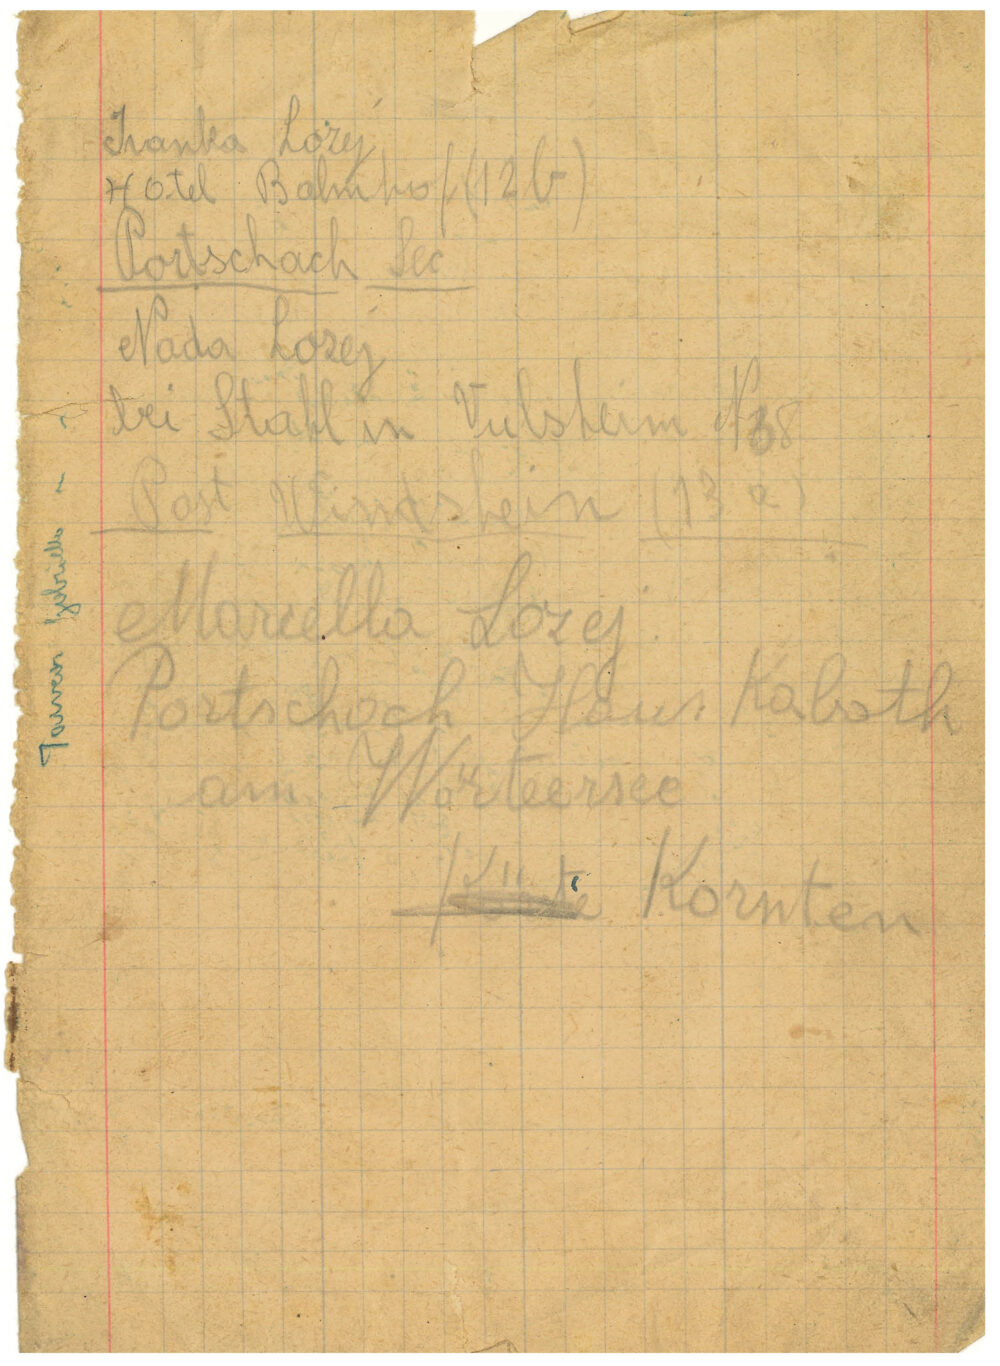 Ivanka Lozej
Hotel Balmhof (12 b)
Portschach See
Nada Lozej
bei Stahl in Vulsheim N 38
Post Windshein (13 a)
Marcella Lozej
Portschach Haus Kaboth
am Wörteersee
Kornten
Gabriella